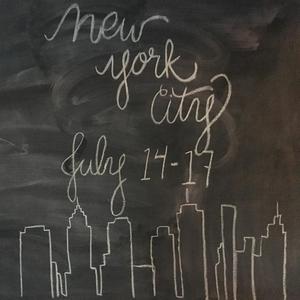 new
york
city
July 14-17